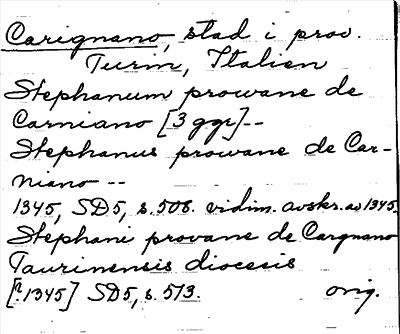 Carignano, stad i prov.
Turin, Italien
Stephanum prowane de
Carniano [3 ggr]--
Stephanus prowane de Car-
niano --
1345, SD5, s. 508. vidim. avskr. av 1345.
Stephani provane de Cargnano
Taurinensis diocesis
[1345] SD5, s. 513. orig.